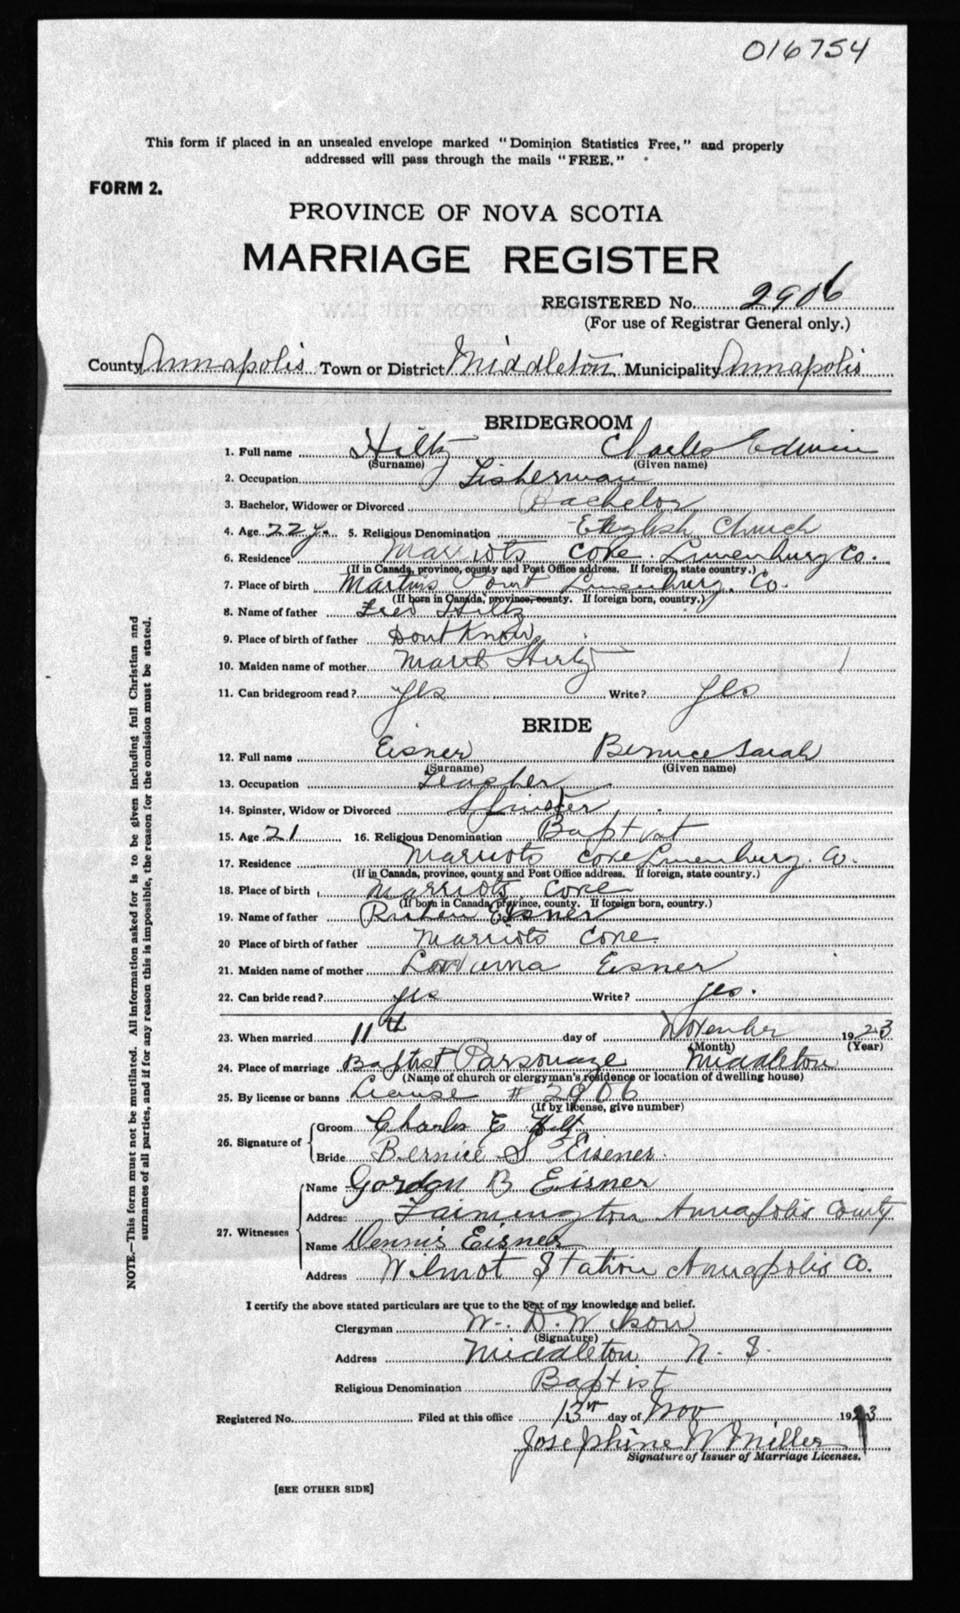 016754
This form if placed in an unsealed envelope marked "Dominion Statistics Free," and properly
addressed will pass through the mails "FREE."
FORM 2.
PROVINCE OF NOVA SCOTIA
MARRIAGE REGISTER
REGISTERED No. 2906
(For use of Registrar General only.)
County Annapolis Town or District Middleton Municipality Annapolis
BRIDEGROOM
1. Full name Hiltz Charles Edwin
(Surname) (Given name)
2. Occupation Fisherman
3. Bachelor, Widower or Divorced Bachelor
4. Age 22 y. 5. Religious Denomination English Church
6. Residence Marriots Cove Lunenburg Co.
(If in Canada, province, county and Post Office address. If foreign, state country.)
7. Place of birth Martins Point Lunenburg, Co.
(If born in Canada, province, county. If foreign born, country.)
8. Name of father Fred Hiltz
9. Place of birth of father Dont Know
10. Maiden name of mother
11. Can bridegroom read? yes Write? yes
BRIDE
12. Full name Eisner Bernice Sarah
(Surname) (Given name)
13. Occupation Teacher
14. Spinster, Widow or Divorced Spinster
15. Age 21 16. Religious Denomination Baptist
17. Residence Marriots Cove Lunenburg. Co.
(If in Canada, province, county and Post Office address. If foreign, state country.)
18. Place of birth Marriots Cove
(If born in Canada, province, county. If foreign born, country.)
19. Name of father Eisner
20 Place of birth of father Marriots Cove.
21. Maiden name of mother Eisner
22. Can bride read? yes Write? yes.
23. When married 11th day of November 1923
(Month) (Year)
24. Place of marriage Baptist Parsonage Middleton
(Name of church or clergyman's residence or location of dwelling house)
25. By license or banns License # 2906
(If by license, give number)
26. Signature of Groom Charles E Hiltz
Bride Bernice S Eisener.
27. Witnesses Name Gordon B Eisner
Address Annapolis County
Name Dennis Eisner
Address Wilmot Station Annapolis Co.
I certify the above stated particulars are true to the best of my knowledge and belief.
Clergyman W. D. Wilson
(Signature)
Address Middleton N. S.
Religious Denomination Baptist
Registered No. Filed at this office 13th day of Nov 1923
Josephine W Miller
Signature of Issuer of Marriage Licenses.
[SEE OTHER SIDE]
NOTE.—This form must not be mutilated. All information asked for is to be given including full Christian and
surnames of all parties, and if for any reason this is impossible, the reason for the omission must be stated.